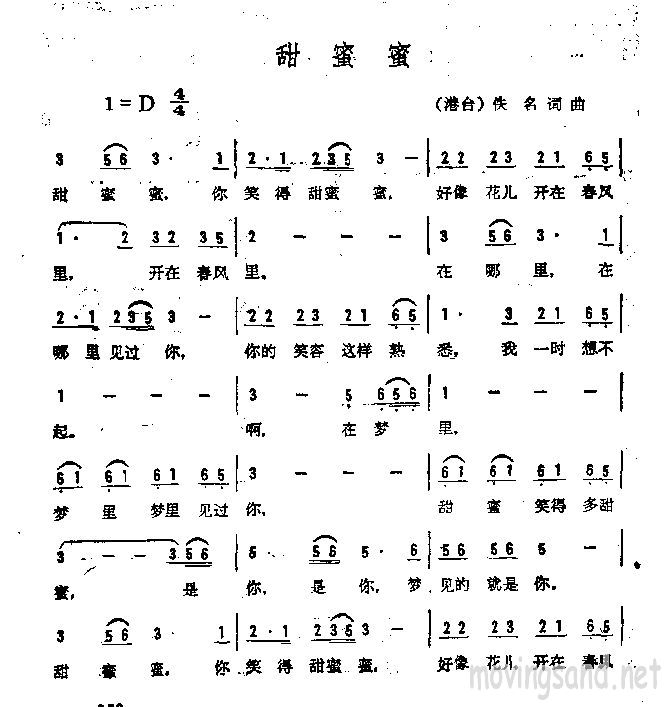 甜 蜜 蜜
1 = D 4/4
(港台) 佚 名 词 曲
3 56 3 · 1 | 2 · 1 235 3 — | 22 23 21 65 |
甜 蜜 蜜, 你 笑 得 甜蜜 蜜, 好像 花儿 开在 春风
1 · 2 32 35 | 2 — — — | 3 56 3 · 1 |
里, 开在 春风 里. 在 哪 里, 在
2 · 1 235 3 — | 22 23 21 65 | 1 · 3 21 65 |
哪 里 见过 你, 你的 笑容 这样 熟 悉, 我 一时 想不
1 — — — | 3 — 5 656 | 1 — — — |
起. 啊, 在 梦 里,
61 61 61 65 | 3 — — — | 61 61 61 65 |
梦 里 梦里 见过 你, 甜 蜜 笑得 多甜
3 — — 356 | 5 · 56 5 · 6 | 55 56 2 — |
蜜, 是 你, 是 你, 梦 见的 就是 你.
3 56 3 · 1 | 2 · 1 235 3 — | 22 23 21 65 |
甜 蜜 蜜, 你 笑 得 甜蜜 蜜, 好像 花儿 开在 春风
movingsand.net